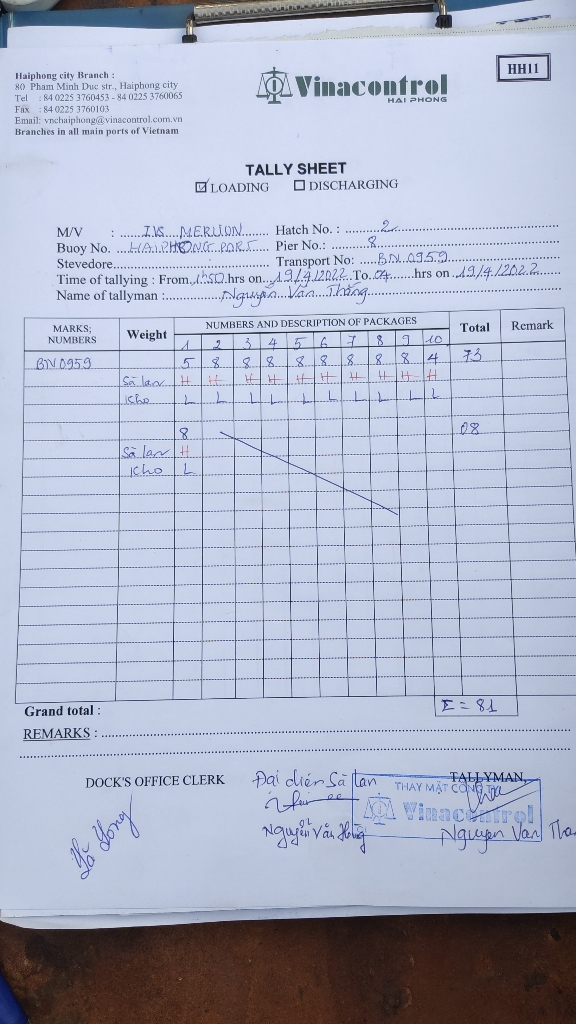 HH11
Haiphong city Branch :
80 Pham Minh Duc str., Haiphong city
Tel : 84 0225 3760453 - 84 0225 3760065
Fax : 84 0225 3760103
Email: vnchaiphong@vinacontrol.com.vn
Branches in all main ports of Vietnam
Vinacontrol
HAI PHONG
TALLY SHEET
☑ LOADING ☐ DISCHARGING
M/V : IVS MERLION Hatch No. : 2
Buoy No. HAIPHONG PORT Pier No.: 8
Stevedore Transport No: BN 0959
Time of tallying : From 1h50 hrs on 19/4/2022 To 04 hrs on 19/4/2022
Name of tallyman : Nguyễn Văn Thắng
MARKS; NUMBERS Weight NUMBERS AND DESCRIPTION OF PACKAGES Total Remark
1 2 3 4 5 6 7 8 9 10
BN 0959 5 8 8 8 8 8 8 8 8 4 73
Sà lan H H H H H H H H H H
Kho L L L L L L L L L L
8 08
Sà lan H
Kho L
Grand total : Σ = 81
REMARKS :
DOCK'S OFFICE CLERK Đại diện Sà lan TALLYMAN
THAY MẶT CÔNG TY
Vinacontrol
Nguyễn Văn Nguyen Van Tha